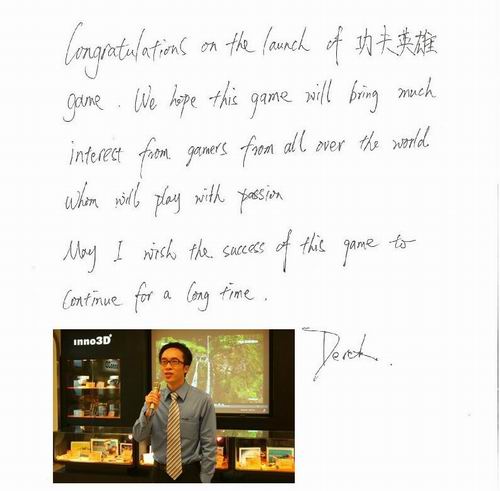 Congratulations on the launch of 功夫英雄
game. We hope this game will bring much
interest from gamers from all over the world
whom will play with passion
May I wish the success of this game to
continue for a long time.
Derek.
inno3D